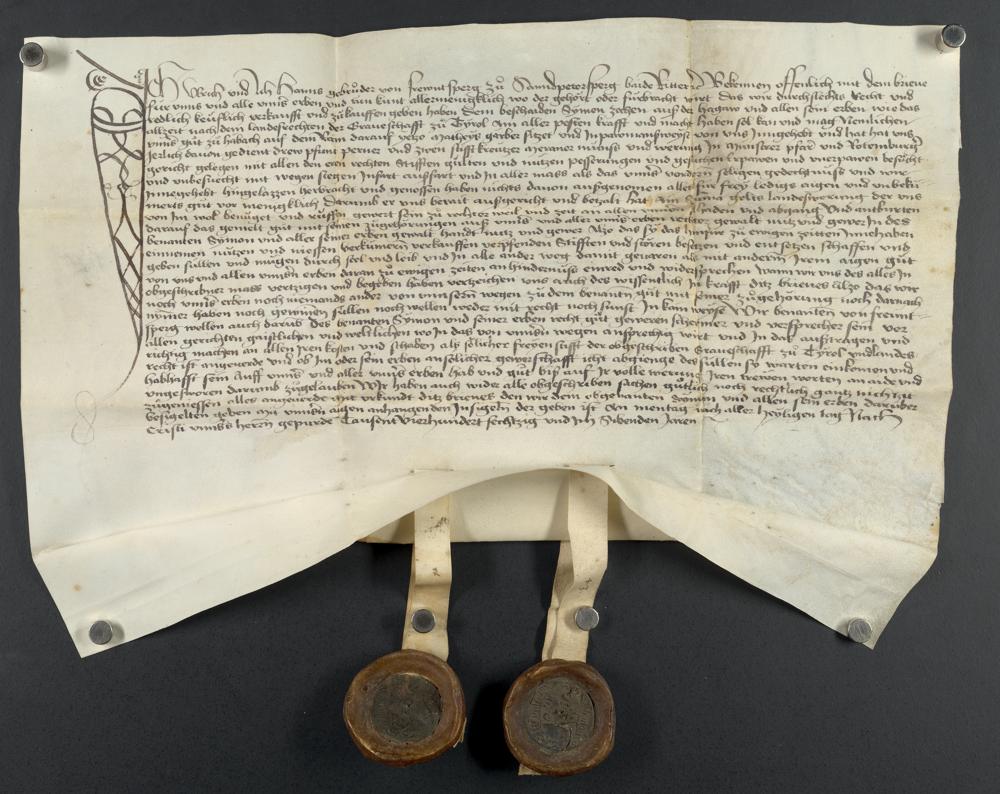 Ich Ulrich und Ich Hanns gebrüder von Frewntsperg zů Sanndpetersperg baide Ritter Bekennen offenlich mit dem brieue
für vnns vnd alle vnns erben vnd tun kunt allermenigklich wo der gehört oder fürbracht wirt das wir durchslechts Recht vnd
redlich keuflich verkaufft vnd zukauffen geben haben dem beschaiden Symon zechen auf der hagaw vnd allen sein erben wie das
allzeit nach dem landesrechten der Grauschafft zu Tyrol Am aller pesten krafft vnd macht haben sol kan vnd mag Nemlichen
vnns gůt zů habach auf dem Rain darauf yecz Matheys garber siczet vnd Inpawmansweyse von vns Inngehebt vnd hat hat vnns
Jerlich dauon gedient drew pfunt perner vnd zwen stifft kreuczer Meraner münss vnd werung In Münstrer pfarr vnd Rotemburger
gericht gelegen mit allen den eren rechten Stifften gülten vnd nuczen pesserungen vnd gesuchen Erpawen vnd vnerpawen besücht
vnd vnbesuecht mit wegen stegen Infart ausfart vnd In aller mass als das vnns vordern seligen gedechtnuss vnd wir
Innegehebt hingelazzen herbracht vnd genossen haben nichts dauon aussgenomen alles für frey ledigs aigen vnd vnbekü
merts gůt vor menigklich Darumb er vns berait aussgericht vnd betzalt hat Ain Suma gelts landeswerung der vns
von Im wol benüget vnd rüffen gewert sein zu rechter weil vnd zeit an allen vnnsern schaden vnd abgang Vnd antburten
darauf das gemelt gůt mit seinen zugehörungen von vnns vnd aller vnns erben rechter gewalt nucz vnd gewer In des
benanten Symon vnd aller seiner erben gewalt handt nucz vnd gewer Also das sy das hinfür zu ewigen zeitten Innehaben
einnemen nüczen vnd niessen verkümern verkauffen verpfenden Stifften vnd stören beseczen vnd entseczen schaffen vnd
geben sullen vnd mügen durch sel vnd leib vnd In alle ander weg damit geuaren als mit anderm Irem aigen gůt
von vns vnd allen vnnsern erben daran zu ewigen zeiten an hindernüss einred vnd widersprechen wann wir vns des alles In
obgeschribner mass vertzigen vnd begeben haben vertzeichen vns auch des wissentlich In krafft ditz brieues Also das wir
noch vnns erben noch niemands ander von vnnsern wegen zu dem benanten gůt mit seiner zugehörung noch darnach
nymer haben noch gewinen sullen noch wellen weder mit recht noch sunst In kain weyse Wir benanten von Frewnt
sperg wellen auch darüb des benanten Symon vnd seiner erben recht gůt geweren schermer vnd versprecher sein vor
allen gerichten gaistlichen vnd weltlichen wo In das von vnnsern wegen ansprechig wirt vnd In das austragen vnd
richtig machen an allen Iren kosten vnd schaden als sölicher freyen stifft der obgeschriben Grauschafft zu Tyrol vnd landes
recht ist angeuerde vnd ob Im oder sein erben an sölicher gewerschafft icht abgienge des sullen sy warten einkomen vnd
habhafft sein Auff vnns vnd aller vnns erben hab vnd gůt biss auf Ir volle werung Iren trewen worten an aide vnd
ungesworen darumb zugelauben Wir haben auch wider alle obgeschriben sachen gütlich noch rechtlich gantz nicht
zugeniessen alles angeuerde Mit vrkundt ditz brieues den wir dem obgenanten Symon vnd allen sein erben darüber
besigelten geben mit vnnsern aigen anhangenden Insigeln Der geben ist Am mentag nach aller heyligen tag Nach
Cristi vnnsers herrn gepurde Tausent Vierhundert sechtzig vnd Im Sibenden Jaren